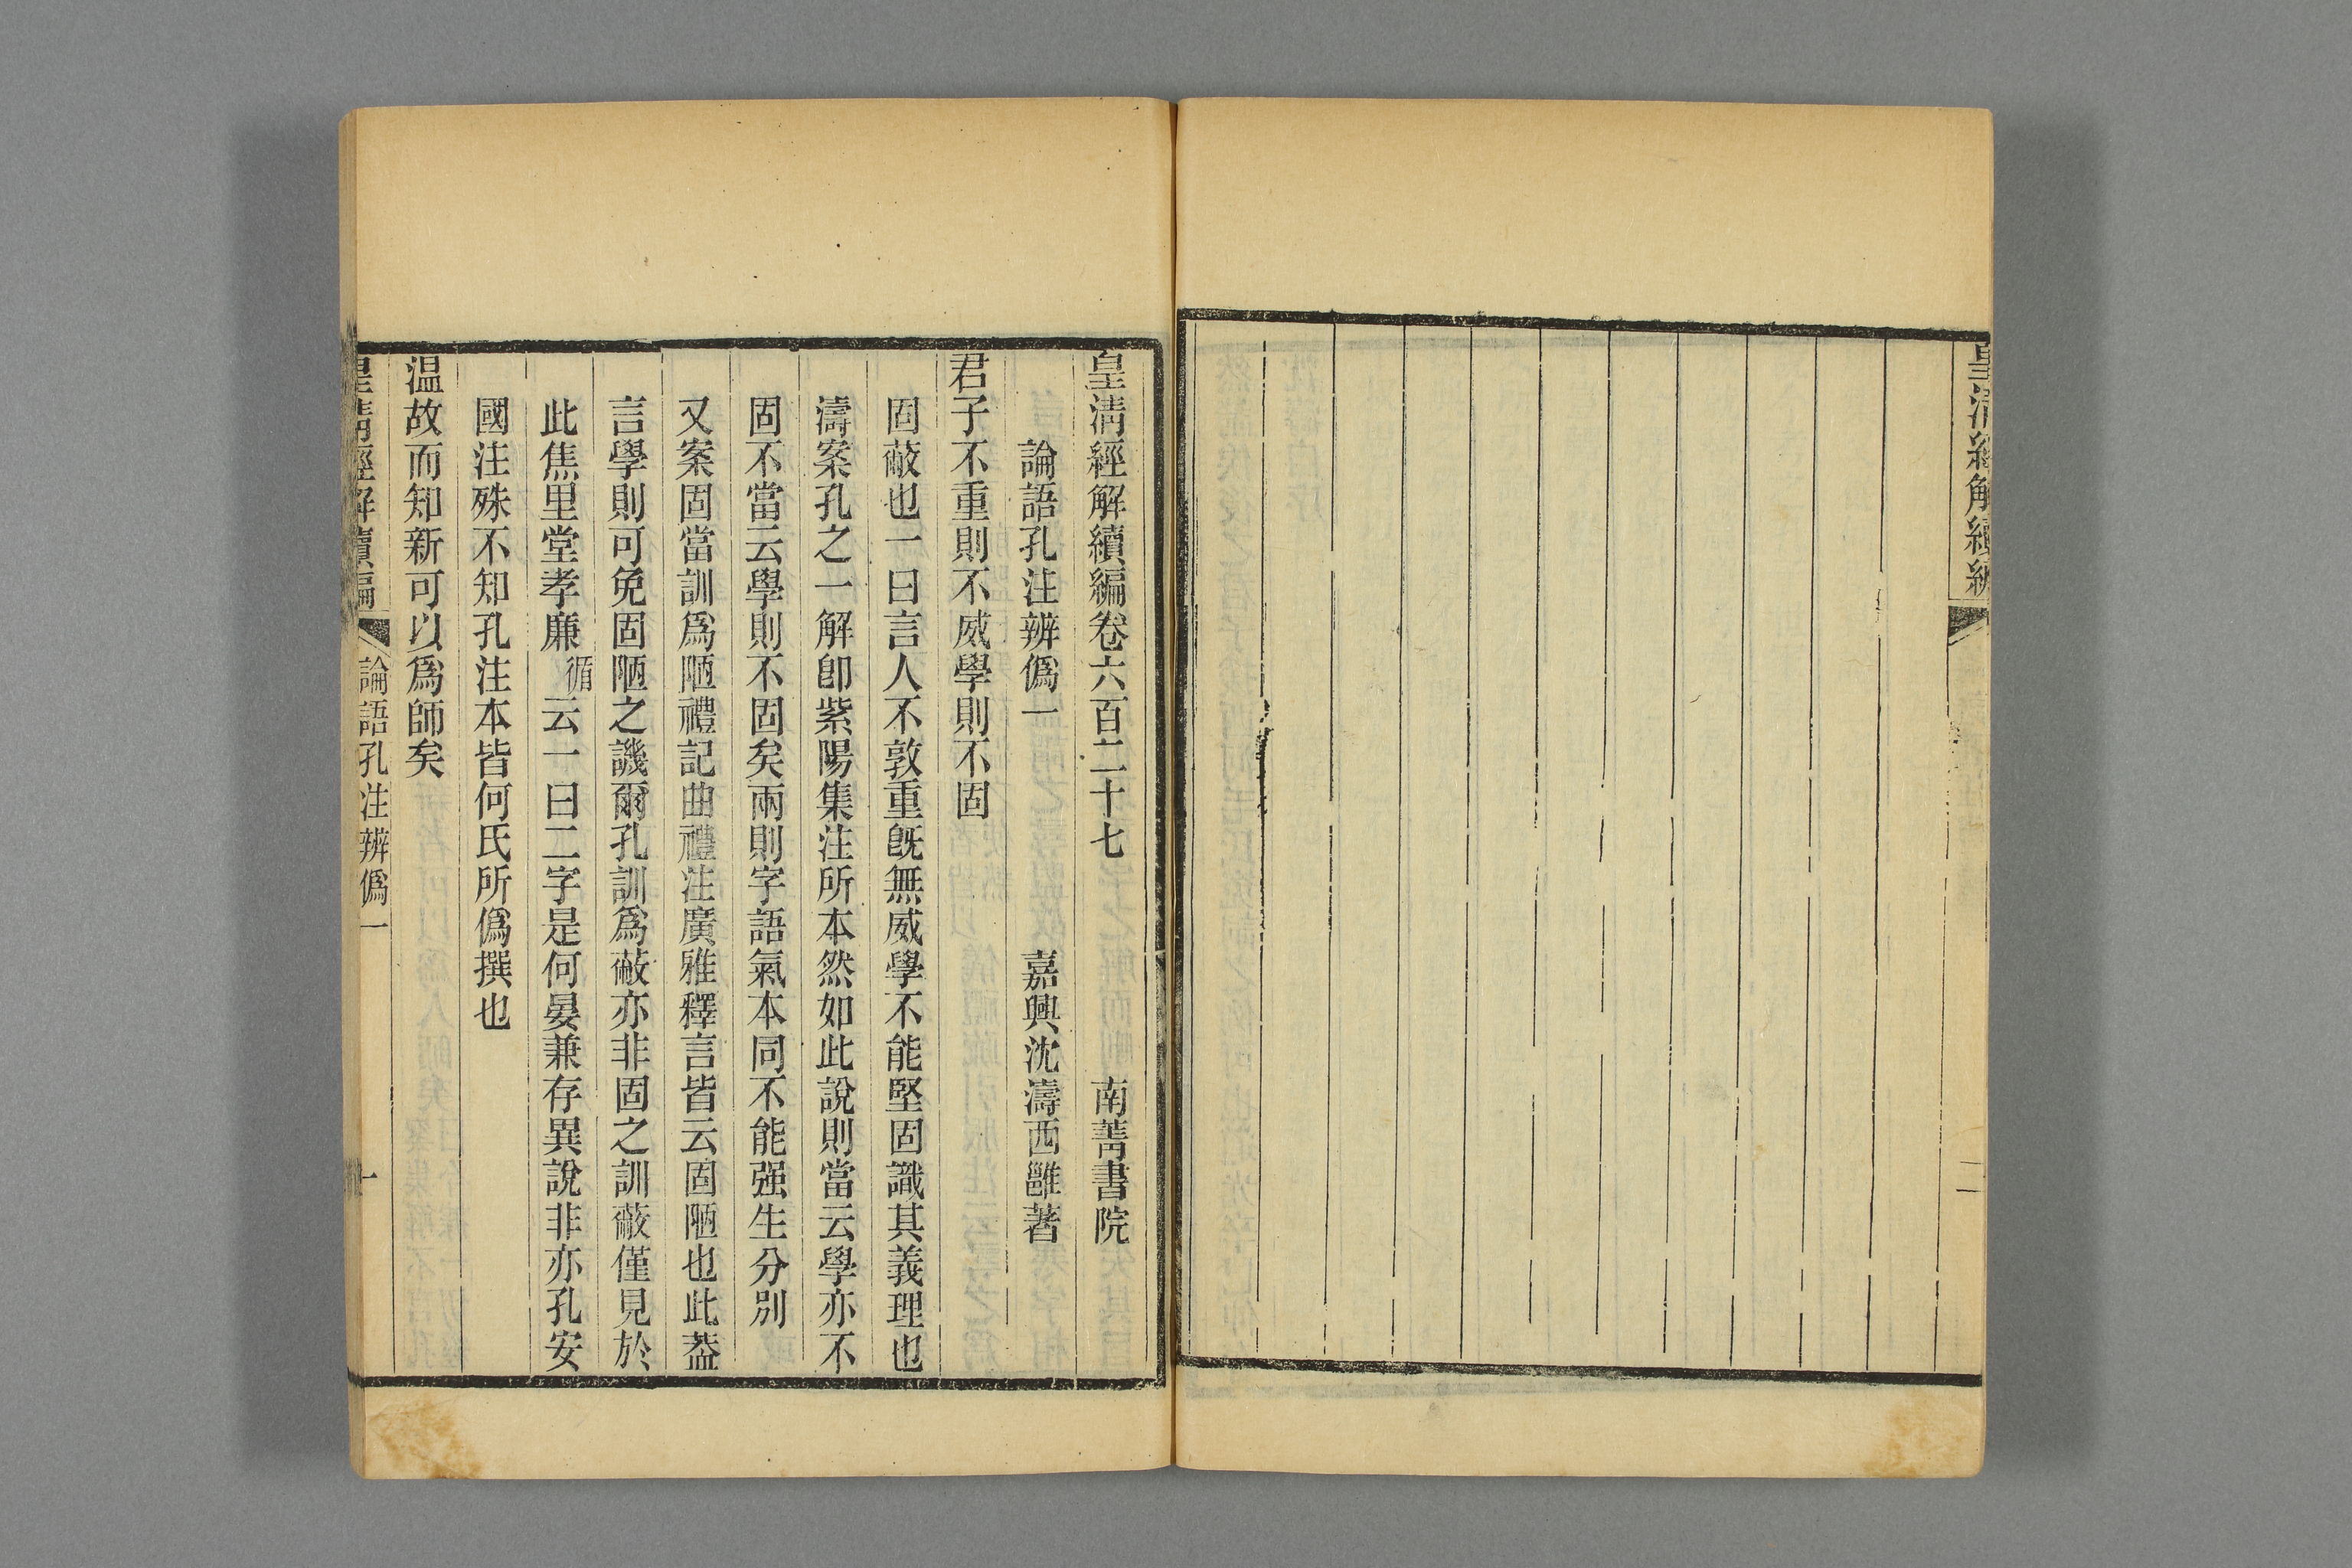 皇清經解續編
二
皇清經解續編卷六百二十七 南菁書院
論語孔注辨僞一 嘉興沈濤西雝著
君子不重則不威學則不固
固蔽也一曰言人不敦重旣無威學不能堅固識其義理也
濤案孔之一解卽紫陽集注所本然如此說則當云學亦不
固不當云學則不固矣兩則字語氣本同不能强生分別
又案固當訓爲陋禮記曲禮注廣雅釋言皆云固陋也此葢
言學則可免固陋之譏爾孔訓爲蔽亦非固之訓蔽僅見於
此焦里堂孝廉循云一曰二字是何晏兼存異說非亦孔安
國注殊不知孔注本皆何氏所僞撰也
温故而知新可以爲師矣
皇清經解續編 論語孔注辨僞一 一